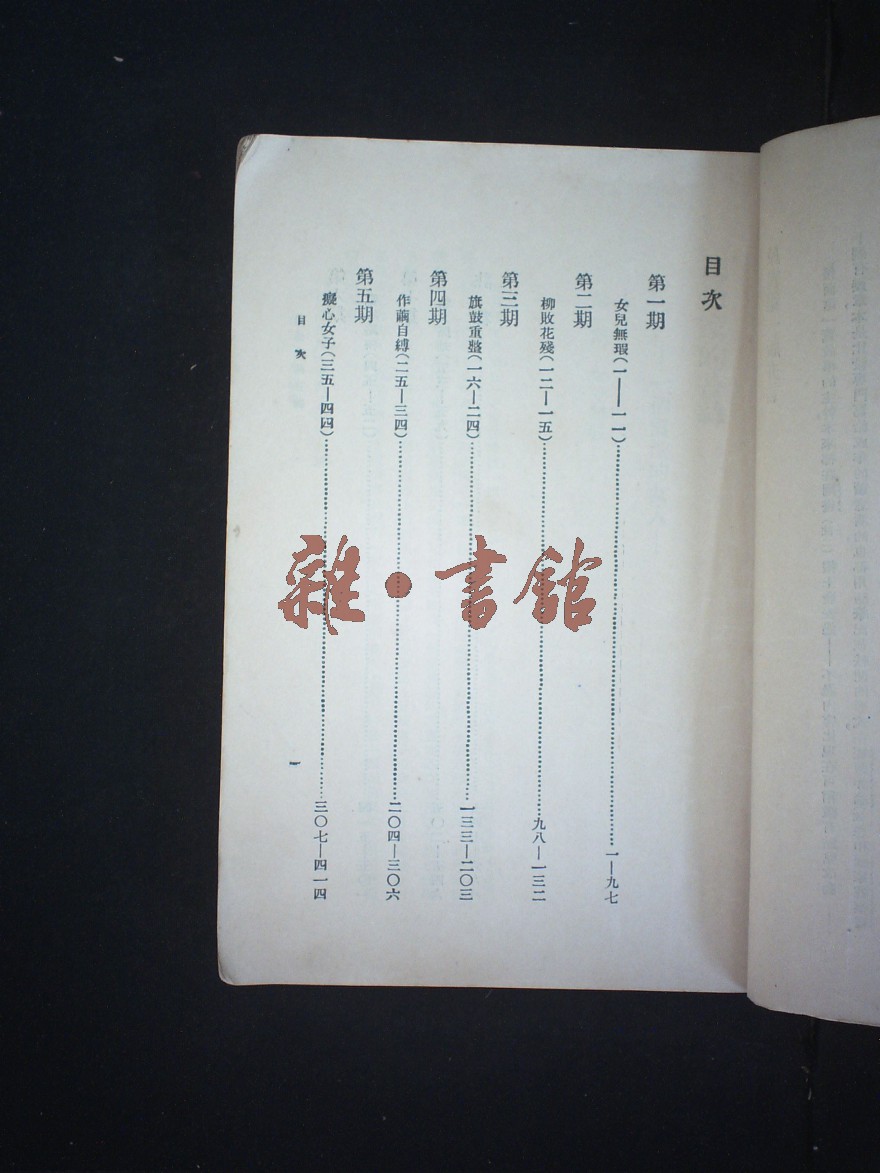 目次
第一期
女兒無瑕(一——一一)…………一—九七
第二期
柳敗花殘(一二—一五)…………九八—一三二
第三期
旗鼓重整(一六—二四)…………一三三—二〇三
第四期
作繭自縛(二五—三四)…………二〇四—三〇六
第五期
癡心女子(三五—四四)…………三〇七—四一四
目次
一
雜·書館